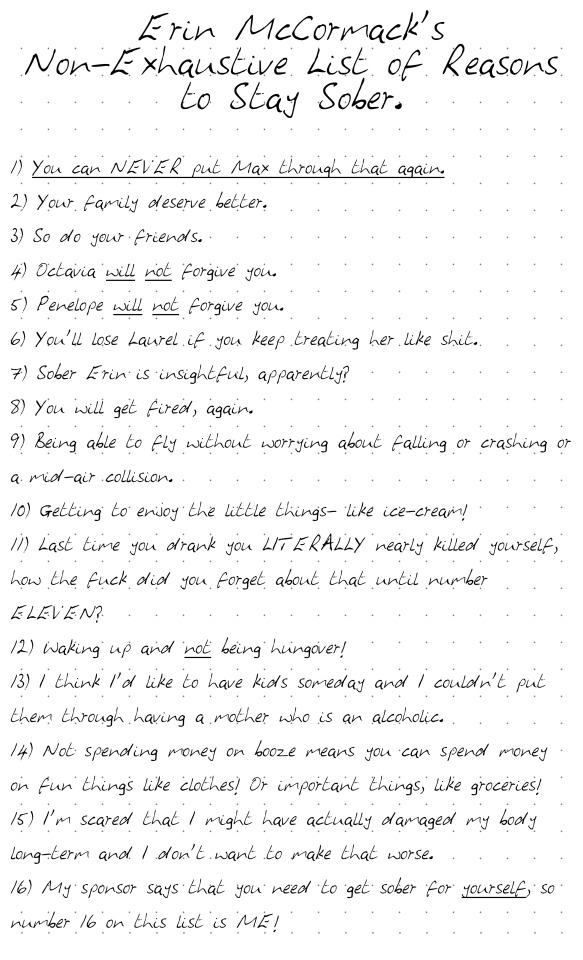 Erin McCormack's
Non-Exhaustive List of Reasons
to Stay Sober.
1) You can NEVER put Max through that again.
2) Your family deserve better.
3) So do your friends.
4) Octavia will not forgive you.
5) Penelope will not forgive you.
6) You'll lose Laurel if you keep treating her like shit.
7) Sober Erin is insightful, apparently?
8) You will get fired, again.
9) Being able to fly without worrying about falling or crashing or
a mid-air collision.
10) Getting to enjoy the little things- like ice-cream!
11) Last time you drank you LITERALLY nearly killed yourself,
how the fuck did you forget about that until number
ELEVEN?
12) Waking up and not being hungover!
13) I think I'd like to have kids someday and I couldn't put
them through having a mother who is an alcoholic.
14) Not spending money on booze means you can spend money
on fun things like clothes! Or important things, like groceries!
15) I'm scared that I might have actually damaged my body
long-term and I don't want to make that worse.
16) My sponsor says that you need to get sober for yourself, so
number 16 on this list is ME!